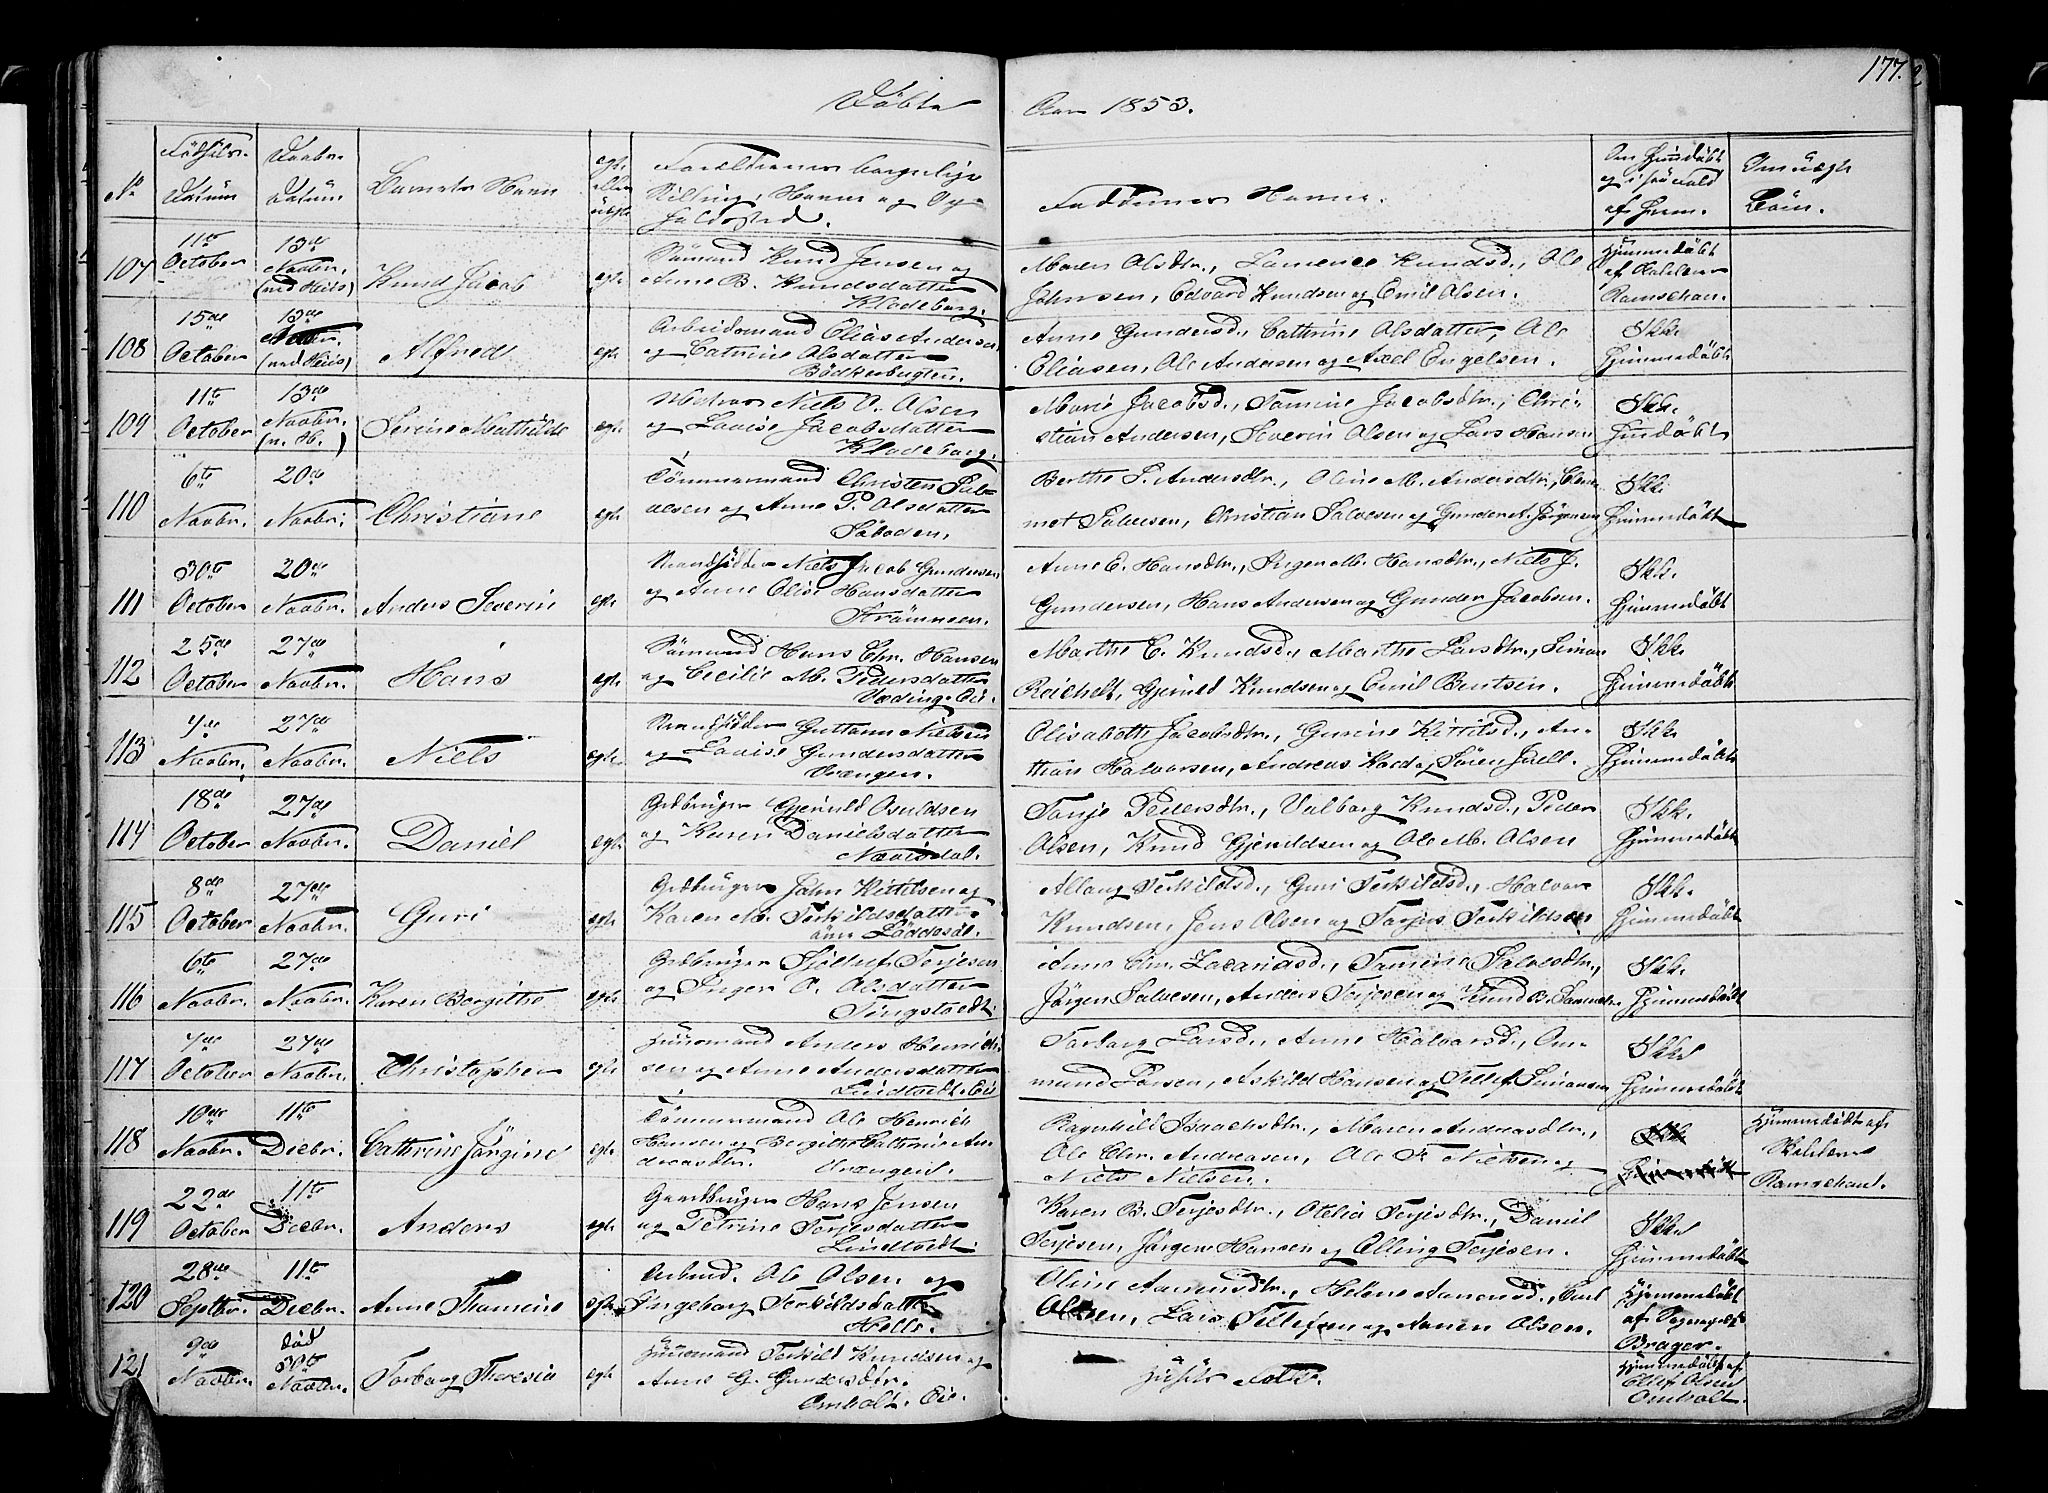 177.
Døbte
Aar 1853.
No
Fødsels-
Datum
Daabs-
Datum
Barnets Navn
egte
eller
uegte
Forældrenes borgerlige
Stilling, Navne og Op-
holdssted.
Faddernes Navne.
Om hjemdøbt
og i saa Fald
af hvem.
Om uægte
Børn.
107
11te
October
13de
Novbr.
(ved Hiis)
Knud Jacob
egte
Sømand Knud Jensen og
Anne B. Knudsdatter
Kladeborg.
Maren Olsdtr., Laurence Knudsd., Ole
Johnsen, Edvard Knudsen og Emil Olsen.
Hjemmedøbt
af Skolelærer
Ramschau.
108
15de
October
13de
Novbr.
(ved Hiis)
Alfred
egte
Arbeidsmand Elias Andersen
og Catrine Olsdatter
Bødkerbugten.
Anne Gundersd., Cathrine Olsdatter, Ole
Eliasen, Ole Andersen og Axel Engelsen.
Ikke
hjemmedøbt
109
11te
October
13de
Novbr.
(v. H.)
Serine Mathilde
egte
Niels O. Olsen
og Lovise Jacobsdatter
Kladeborg.
Marie Jacobsd., Tomine Jacobsdtr., Chri-
stian Andersen, Severin Olsen og Lars Hansen
Ikke
hjemdøbt
110
6te
Novbr.
20de
Novbr.
Christiane
egte
Tømmermand Christen Sal-
vesen og Anne P. Olsdatter
Søboden.
Berthe S. Andersdtr., Oline M. Andersdtr., Clem-
met Salvesen, Christian Salvesen og Gunder A. Jørgensen
Ikke
hjemmedøbt
111
30te
October
20de
Novbr.
Anders Severin
egte
Strandsidder Niels Jacob Gundersen
og Anne Olise Hansdatter
Strømmen.
Anne E. Hansdtr., Inger M. Hansdtr., Niels J.
Gundersen, Hans Andersen og Gunder Jacobsen.
Ikke
hjemmedøbt
112
25de
October
27de
Novbr.
Hans
egte
Sømand Hans Chr. Hansen
og Cecilie M. Pedersdatter
Marthe E. Knudsd., Marthe Larsdtr., Simon
Reichelt, Gjeruld Knudsen og Emil Bentsen.
Ikke
hjemmedøbt
113
7de
Novbr.
27de
Novbr.
Niels
egte
Strandsidder Guttorm Nielsen
og Lovise Gundersdatter
Vrængen.
Elisabeth Jacobsdtr., Gurine Kittilsd., An-
thon Halvorsen, Andreas Kaad og Søren Juell.
Ikke
hjemmedøbt
114
18de
October
27de
Novbr.
Daniel
egte
Grdbruger Gjeruld Osuldsen
og Karen Danielsdatter
Nævisdal.
Tonje Pedersdtr., Valborg Knudsd., Peder
Olsen, Knud Gjeruldsen og Ole M. Olsen
Ikke
hjemmedøbt
115
8de
October
27de
Novbr.
Guri
egte
Grdbruger John Kittilsen og
Karen M. Terkildsdatter
Løddesøl.
Aslaug Terkildsd., Guri Terkildsd., Halvor
Knudsen, Jens Olsen og Torjus Terkildsen
Ikke
hjemmedøbt
116
6te
Novbr.
27de
Novbr.
Karen Borgithe
egte
Grdbruger Sjøltuf Terjesen
og Inger O. Olsdatter
Tingstvedt.
Anne Chr. Zacariasd., Tomine Salvesdtr.,
Jørgen Salvesen, Anders Terjesen og Knud B. Samuelsen
Ikke
hjemmedøbt
117
7de
October
27de
Novbr.
Christopher
egte
Huusmand Anders Henrich-
sen og Anne Andersdatter
Lindtvedt Eie
Torborg Larsd., Anne Halvorsd., Om-
mund Larsen, Askild Hansen og Tellef Simonsen
Ikke
hjemmedøbt
118
10de
Novbr.
11te
Decbr.
Cathrine Jørgine
egte
Tømmermand Ole Henrich
Hansen og Bergithe Cathrine An-
dreasdtr.
Vrængen.
Ragnhild Isaachsdtr., Maren Andreasdtr.,
Ole Chr. Andreasen, Ole F. Nielsen og
Niels Nielsen.
Ikke
hjemmedøbt
Hjemmedøbt af
Skolelærer
Ramschaut.
119
22de
October
11te
Decbr.
Anders
egte
Gaardbruger Hans Jensen
og Petrine Terjesdatter
Lindtvedt.
Karen B. Terjesdtr., Otelia Terjesdtr., Daniel
Terjesen, Jørgen Hansen og Elling Terjesen.
Ikke
hjemmedøbt
120
28de
Septbr.
11te
Decbr.
Anne Thomine
egte
Arbmd. Ole Olsen og
Ingeborg Terkildsdatter
Helle.
Oline Aanensdtr., Helene Aanensd., Carl
Olsen, Lars Tellefsen og Aanen Olsen.
Hjemmedøbt
af
Brager.
121
9de
Novbr.
død
30te
Novbr.
Torborg Theresia
egte
Huusmand Terkild Knudsen og
Anne G. Gundersdtr.
Omholt. Eie.
Husets Folk.
Hjemmedøbt af
Ellef Olsen
Omholt.